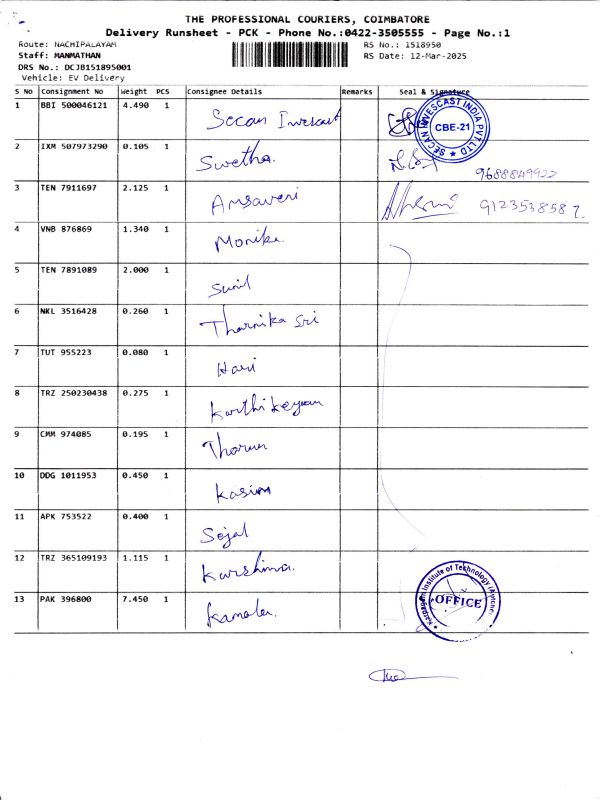 THE PROFESSIONAL COURIERS, COIMBATORE
Delivery Runsheet - PCK - Phone No.:0422-3505555 - Page No.:1
Route: NACHIPALAYAM
RS No.: 1518950
Staff: MANMATHAN
RS Date: 12-Mar-2025
DRS No.: DCJB151895001
Vehicle: EV Delivery
S No Consignment No Weight PCS Consignee Details Remarks Seal & Signature
1 BBI 500046121 4.490 1 Secan Invescast
SECAN INVESCAST INDIA PVT LTD
CBE-21
2 IXM 507973290 0.105 1 Swetha.
9688849922
3 TEN 7911697 2.125 1 Amsaveni 9123538587.
4 VNB 876869 1.340 1 Monika.
5 TEN 7891089 2.000 1 Sunil
6 NKL 3516428 0.260 1 Tharnika Sri
7 TUT 955223 0.080 1 Hari
8 TRZ 250230438 0.275 1 Karthikeyan
9 CMM 974085 0.195 1 Tharun
10 DDG 1011953 0.450 1 Kasim
11 APK 753522 0.400 1 Sejal
12 TRZ 365109193 1.115 1 Karshima.
13 PAK 396800 7.450 1 Kamala.
Karpagam Institute of Technology
OFFICE